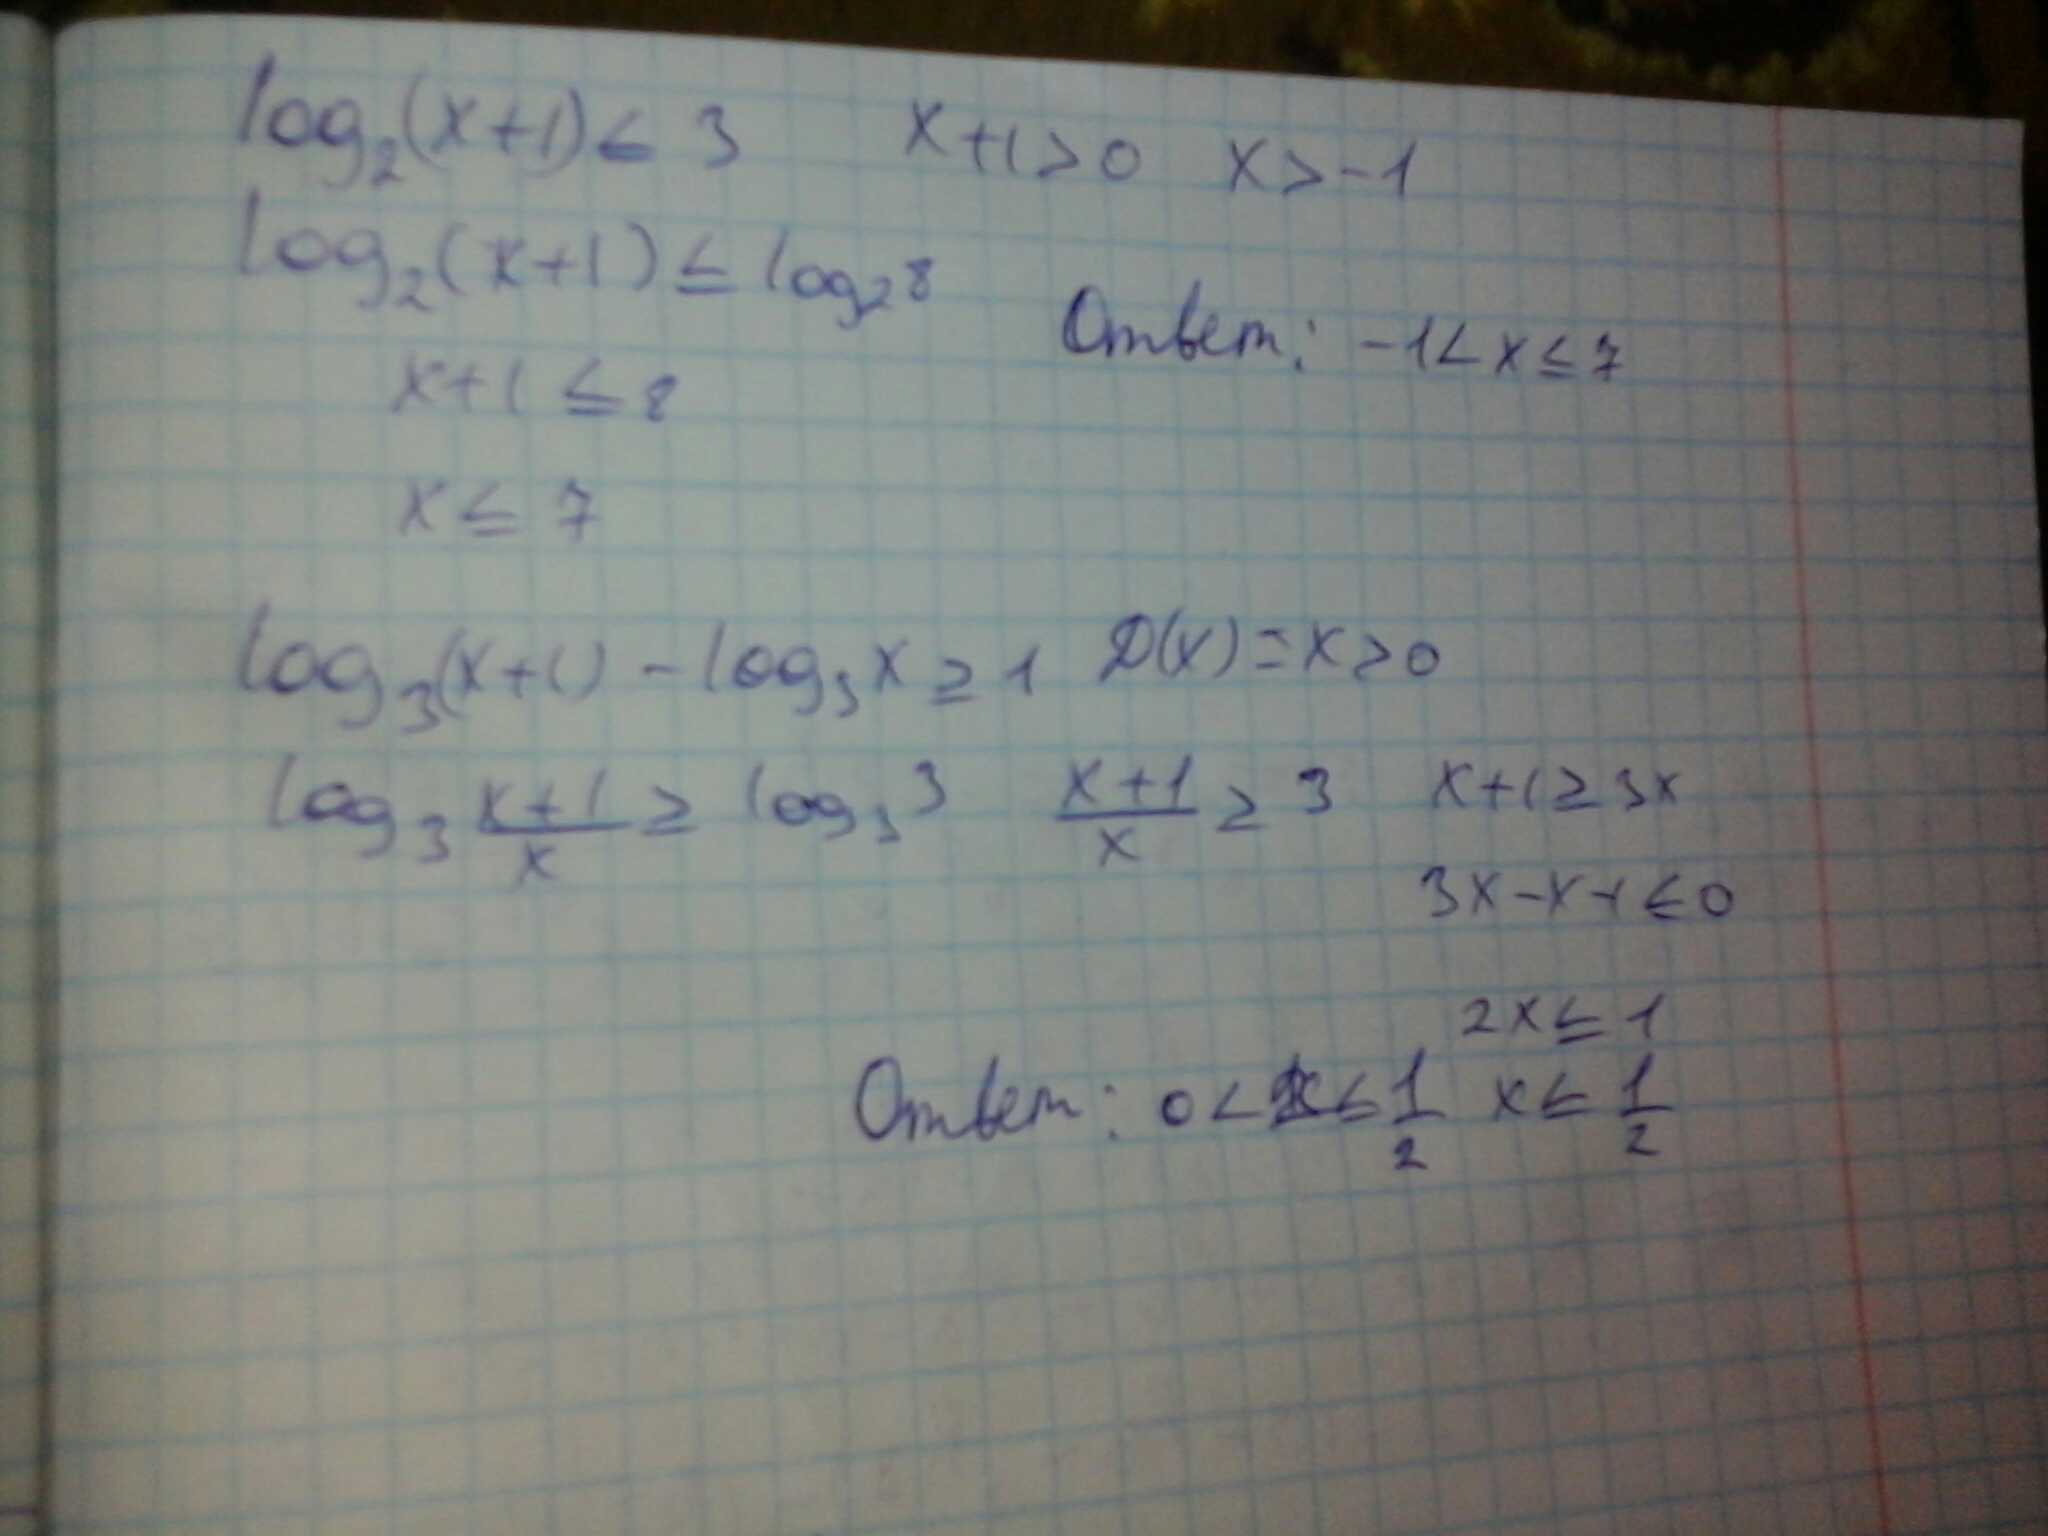 log₂(x+1) ≤ 3 x+1>0 x>-1
log₂(x+1) ≤ log₂8
Ответ: -1<x≤7
x+1 ≤ 8
x ≤ 7
log₃(x+1) - log₃x ≥ 1 D(x) = x>0
log₃ (x+1)/x ≥ log₃3 (x+1)/x ≥ 3 x+1≥3x
3x-x-1≤0
2x≤1
Ответ: 0<x≤1/2 x≤1/2